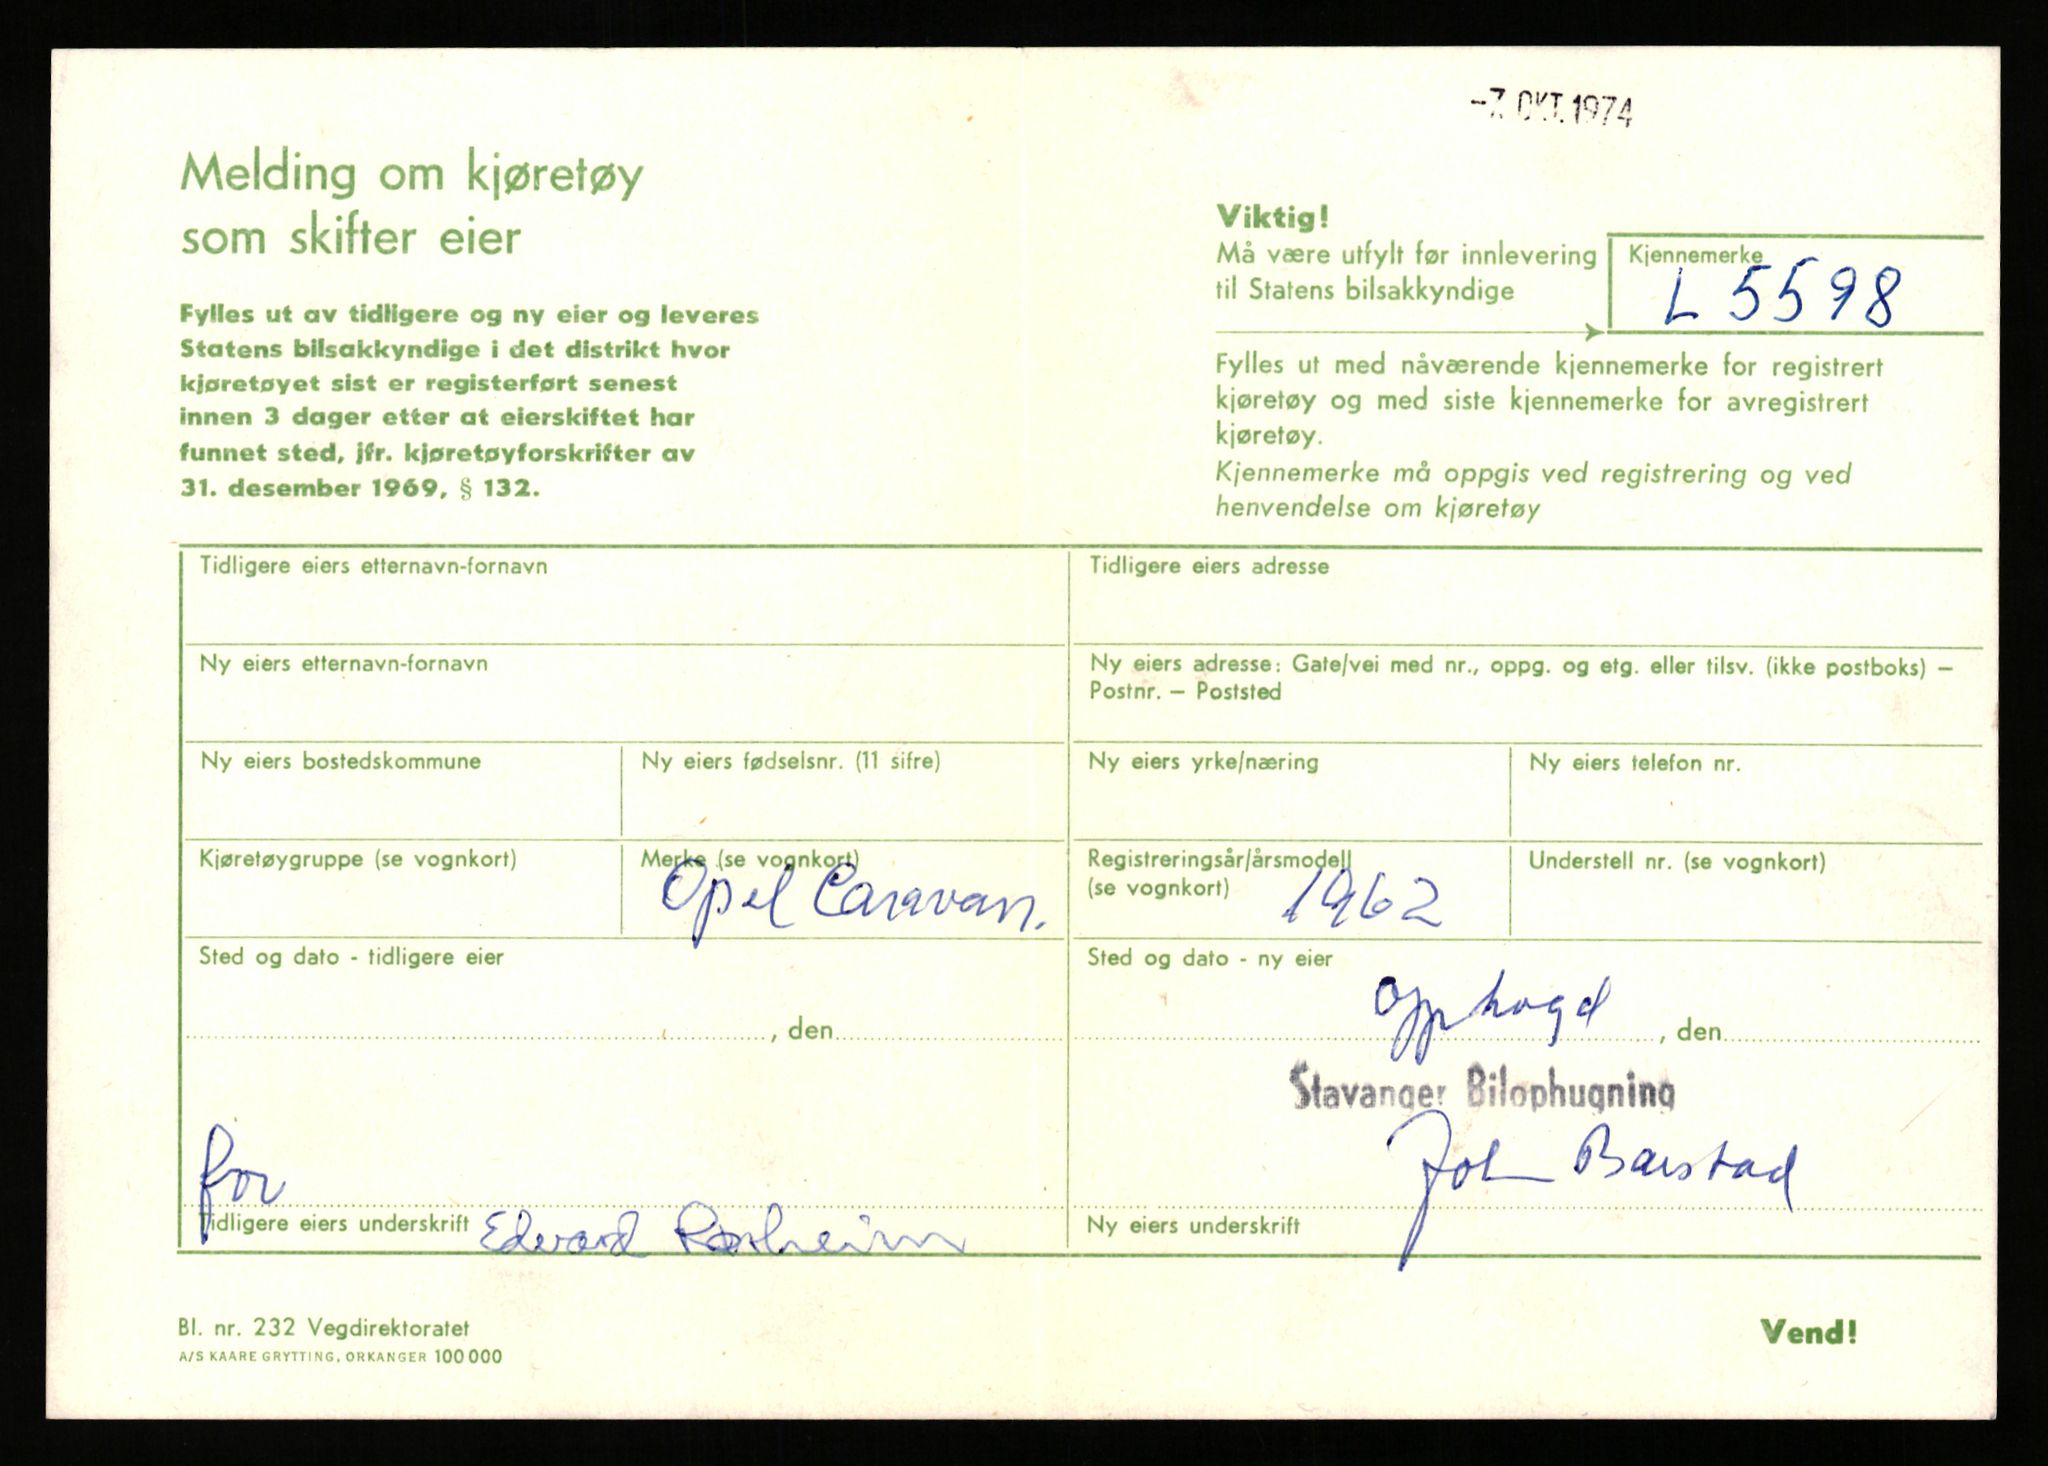 -7. OKT. 1974
Melding om kjøretøy
som skifter eier
Fylles ut av tidligere og ny eier og leveres
Statens bilsakkyndige i det distrikt hvor
kjøretøyet sist er registerført senest
innen 3 dager etter at eierskiftet har
funnet sted, jfr. kjøretøyforskrifter av
31. desember 1969, § 132.
Viktig!
Må være utfylt før innlevering
til Statens bilsakkyndige
Kjennemerke
L 5598
Fylles ut med nåværende kjennemerke for registrert
kjøretøy og med siste kjennemerke for avregistrert
kjøretøy.
Kjennemerke må oppgis ved registrering og ved
henvendelse om kjøretøy
Tidligere eiers etternavn-fornavn
Tidligere eiers adresse
Ny eiers etternavn-fornavn
Ny eiers adresse: Gate/vei med nr., oppg. og etg. eller tilsv. (ikke postboks) –
Postnr. – Poststed
Ny eiers bostedskommune
Ny eiers fødselsnr. (11 sifre)
Ny eiers yrke/næring
Ny eiers telefon nr.
Kjøretøygruppe (se vognkort)
Merke (se vognkort)
Opel Caravan.
Registreringsår/årsmodell
(se vognkort)
1962
Understell nr. (se vognkort)
Sted og dato - tidligere eier
, den
Sted og dato - ny eier
Opphogd
, den
Stavanger Bilophugning
for
John Barstad
Tidligere eiers underskrift
Edvard
Ny eiers underskrift
Bl. nr. 232 Vegdirektoratet
A/S KAARE GRYTTING, ORKANGER 100 000
Vend!